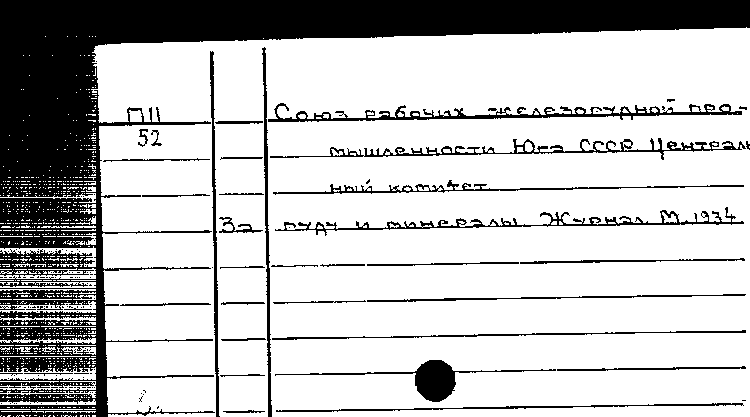 П11 Союз рабочих железорудной про-
52 мышленности Юга СССР Централь
ный комитет
За руду и минералы Журнал М. 1934